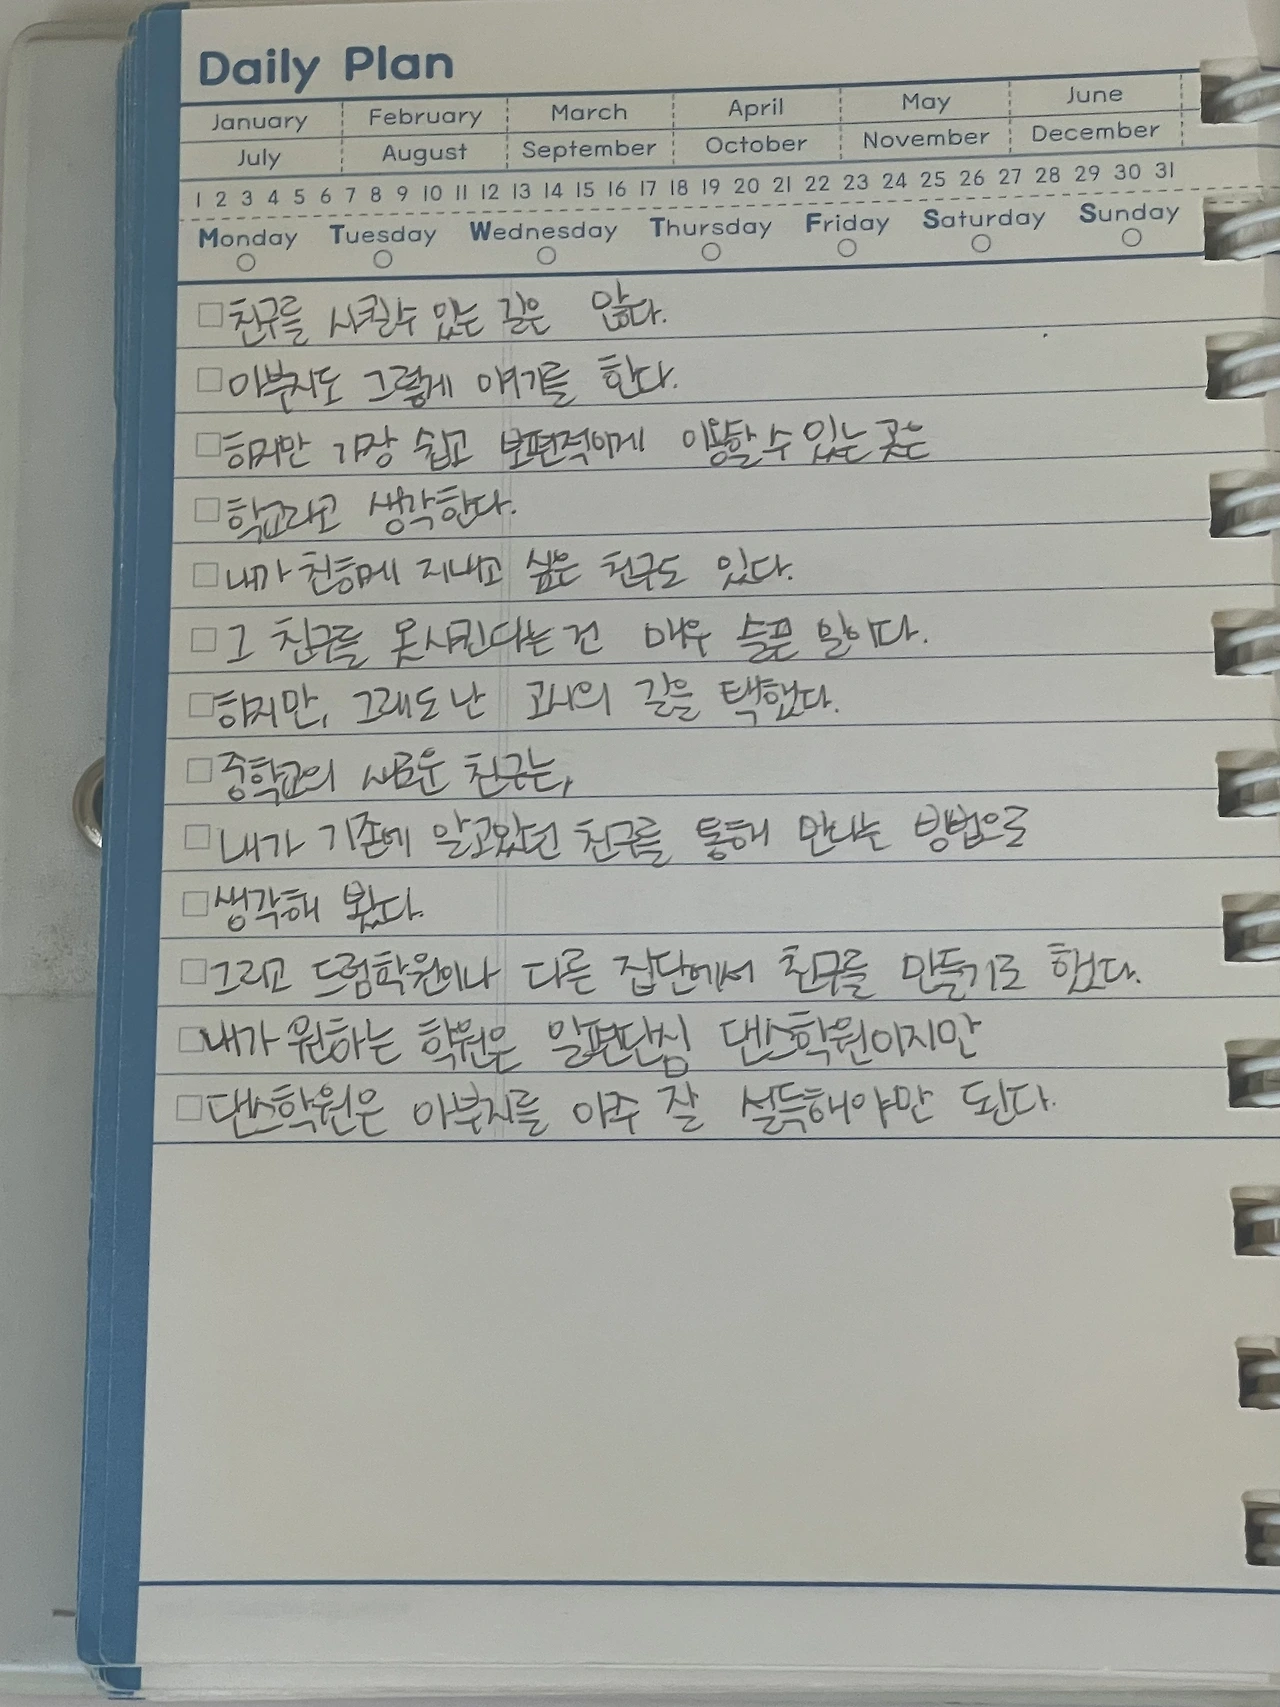 Daily Plan
January February March April May June
July August September October November December
1 2 3 4 5 6 7 8 9 10 11 12 13 14 15 16 17 18 19 20 21 22 23 24 25 26 27 28 29 30 31
Monday Tuesday Wednesday Thursday Friday Saturday Sunday
친구를 사귈수 있는 길은 많다.
아부지도 그렇게 얘기를 한다.
하지만 가장 쉽고 보편적이게 이용할 수 있는 곳은
학교라고 생각한다.
내가 친하게 지내고 싶은 친구도 있다.
그 친구를 못사귄다는건 매우 슬픈 일이다.
하지만, 그래도 난 고시의 길을 택했다.
중학교의 새로운 친구는,
내가 기존에 알고있던 친구를 통해 만나는 방법으로
생각해 봤다.
그리고 드럼학원이나 다른 집단에서 친구를 만들기로 했다.
내가 원하는 학원은 일편단심 댄스학원이지만
댄스학원은 아부지를 아주 잘 설득해야만 된다.